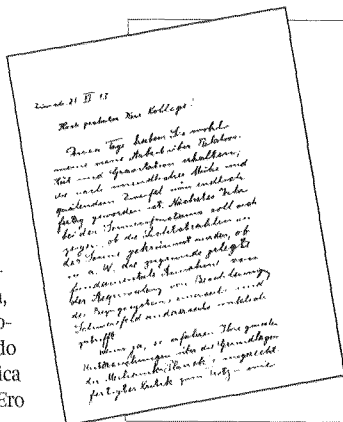 Hoch geehrter Herr Kollege!
Dieser Tage haben Sie wohl
meine neue Arbeit über Relativi-
tät und Gravitation erhalten,
die nach unendlicher Mühe und
quälendem Zweifel nun endlich
fertig geworden ist. Nächstes Jahr
bei der Sonnenfinsternis soll sich
zeigen, ob die Lichtstrahlen an
der Sonne gekrümmt werden, ob
m. a. W. die zugrunde gelegte
fundamentale Annahme von
der Aequivalenz von Beschleunigung
des Bezugssystems einerseits und
Schwerefeld andererseits wirklich
zutrifft.
Wenn ja, so erfahren Ihre genialen
Untersuchungen über die Grundlagen
der Mechanik - Planck's ungerecht-
fertigter Kritik zum Trotz - eine
-
a,
o-
do
ica
Ero